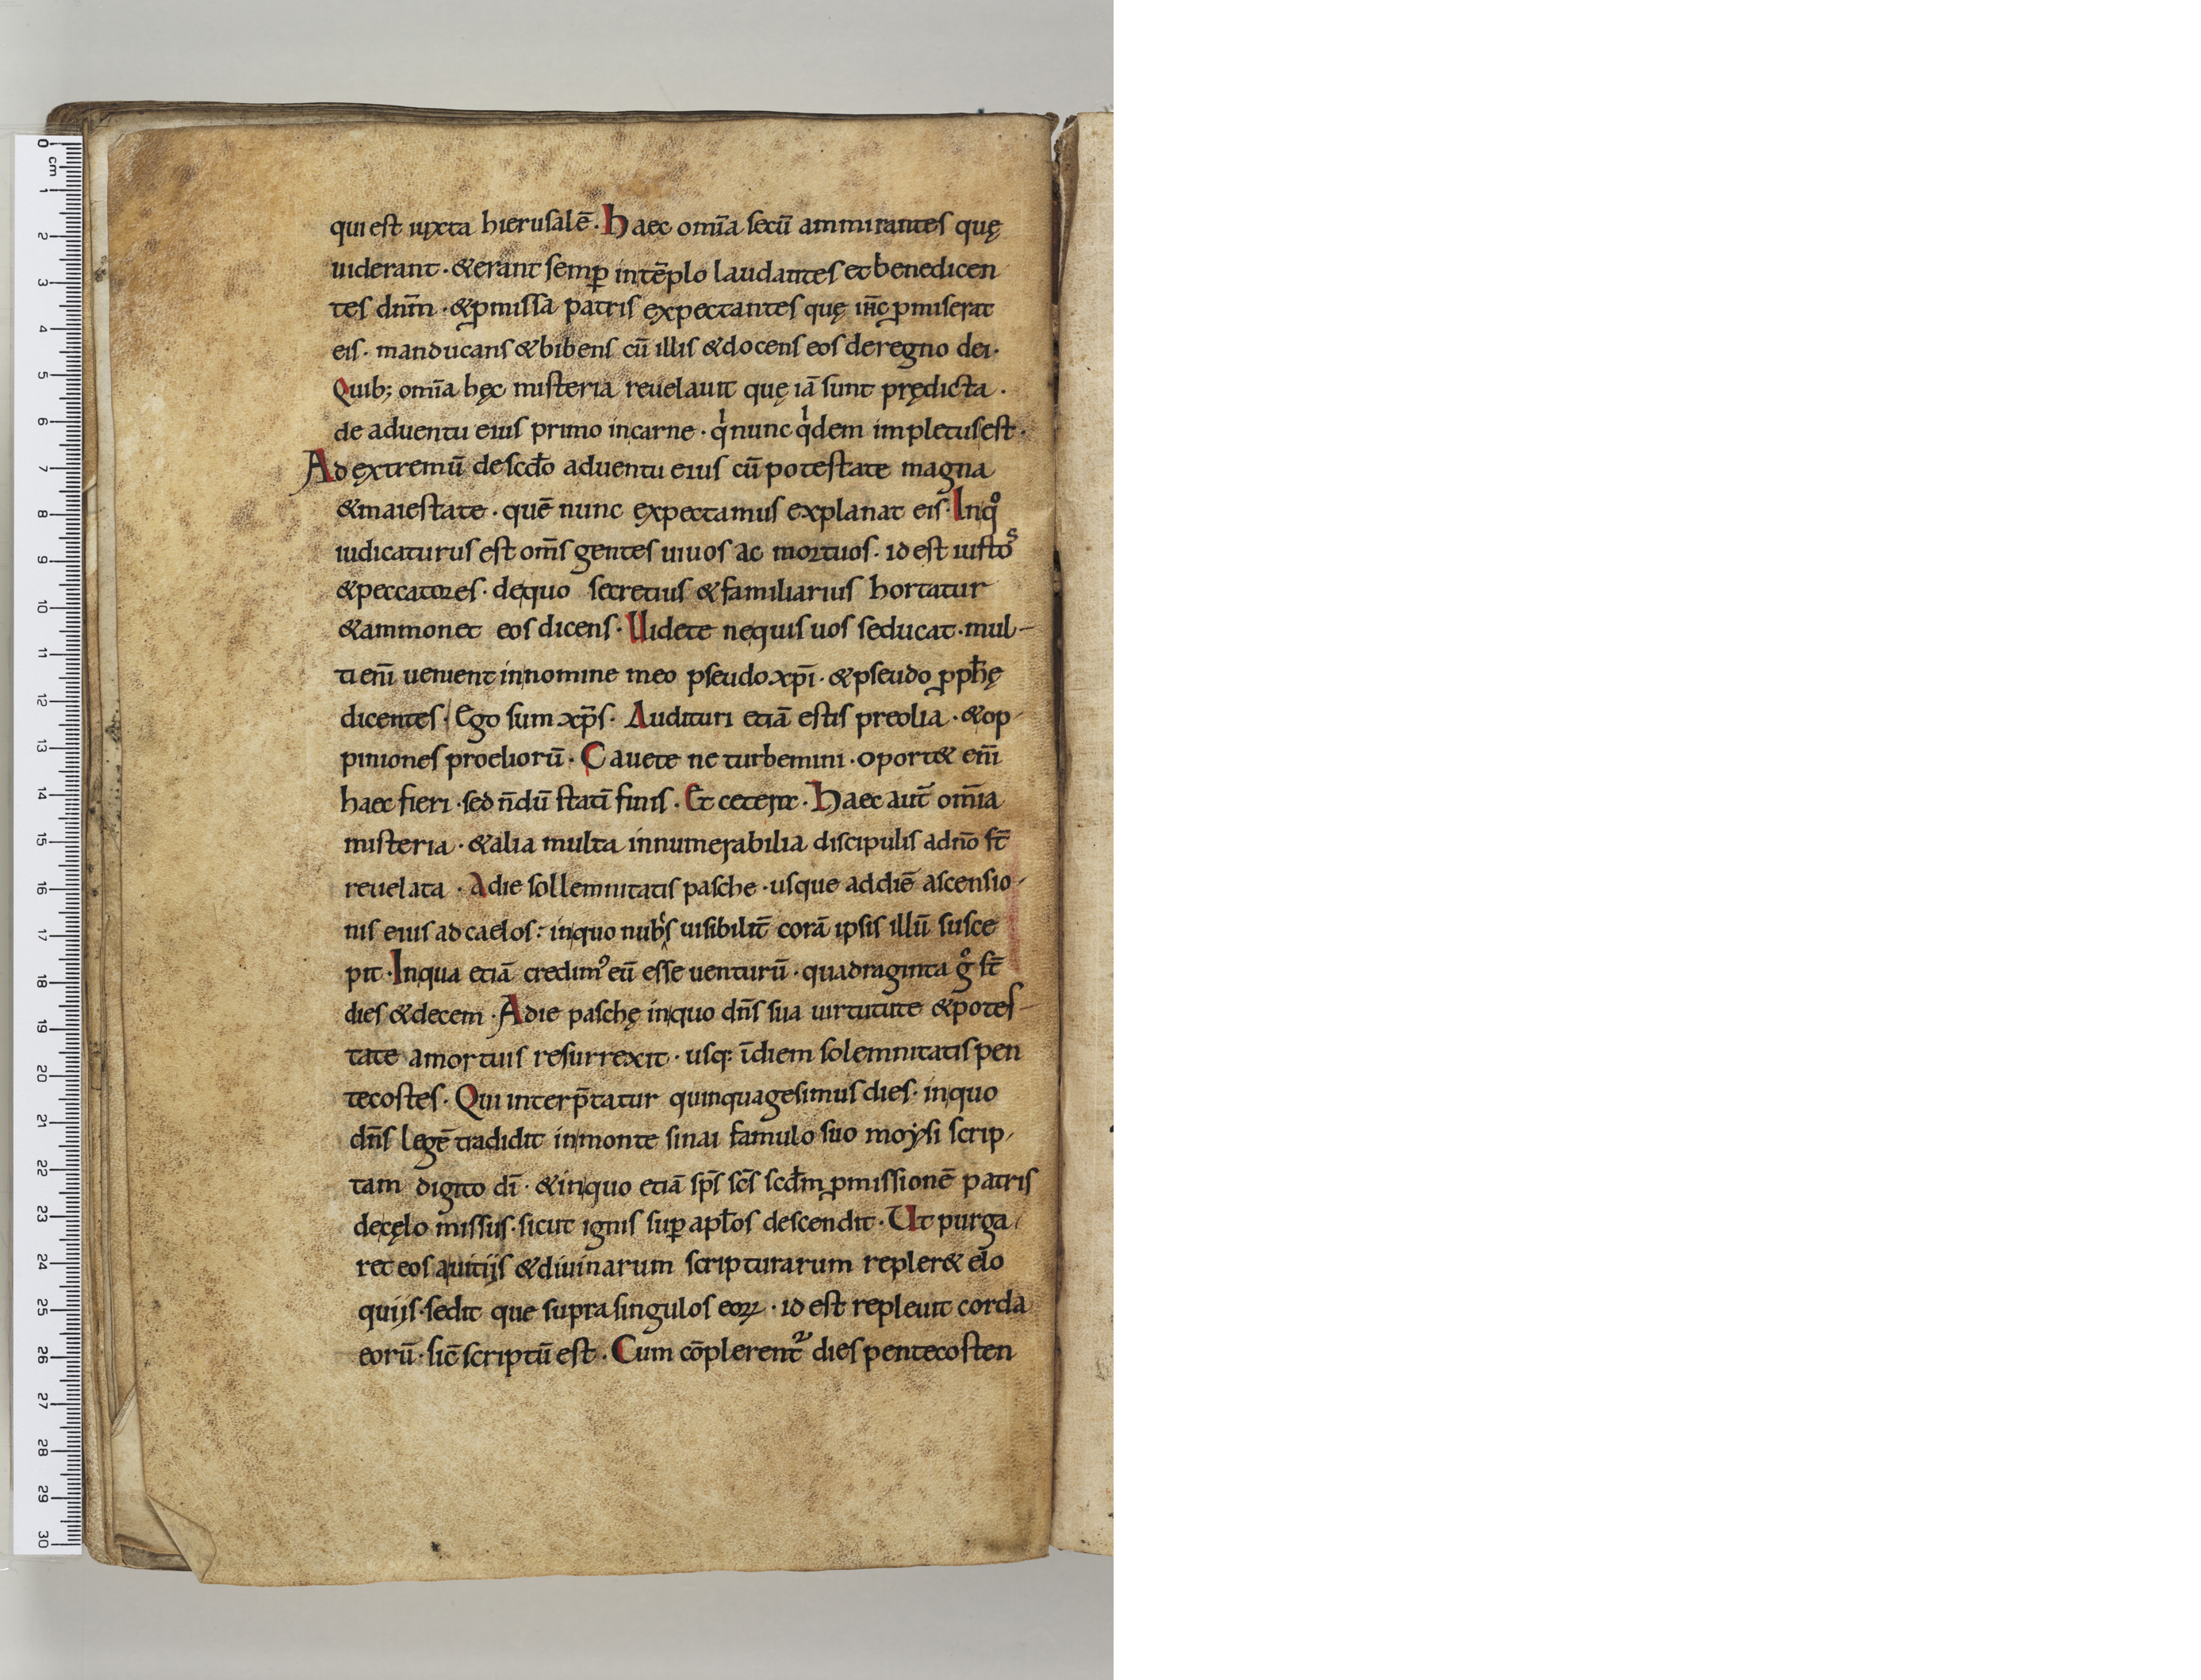 qui est iuxta hierusalē. Haec om̄a secū ammirantes quę
uiderant. & erant semꝑ intēplo laudantes et benedicen
tes dnm̄. & ꝓmissa patris expectantes quę ꝓmiserat
eis. manducans & bibens cū illis & docens eos de regno dei.
Quib; om̄a hęc misteria reuelauit quę iā sunt prędicta.
de aduentu eius primo incarne. qͥ nunc qͥdem impletus est.
Ad extremū de scđo aduentu eius cū potestate magna
& maiestate. quē nunc expectamus explanat eis. Inqͦ
iudicaturus est om̄s gentes uiuos ac mortuos. id est iustos
& peccatores. dequo secretius & familiarius hortatur
& ammonet eos dicens. Uidete nequis uos seducat. mul-
ti eni̅ uenient innomine meo pseudo xp̄i. & pseudo ꝓpħę
dicentes. Ego sum xp̄s. Audituri etiā estis preolia. & op-
piniones proeliorū. Cauete ne turbemini. oport& eni̅
haec fieri. sed n̄dū statī finis. Et cetera. Haec aut̄ om̄ia
misteria. & alia multa innumerabilia discipulis adn̄o st̄
reuelata. Adie sollemnitatis pasche. usque addiē ascensio-
nis eius ad caelos: inquo nubͥs uisibilit̄ corā ipsis illū susce
pit. Inqua etiā credimꝰ eū esse uenturū. quadraginta gͦ st̄
dies & decem. Adie paschę inquo dn̄s sua uirtutute & potes-
tate amortuis resurrexit. usq: īdiem solemnitatis pen
tecostes. Qui interp̄tatur quinquagesimus dies. inquo
dn̄s legē tradidit inmonte sinai famulo suo moysi scrip-
tam digito dī. & inquo etiā sp̄s sc̄s scđm ꝓmissionē patris
decęlo missus. sicut ignis suꝑ apl̄os descendit. Ut purga-
ret eos auitijs & diuinarum scripturarum repler& elo
quijs. sedit que supra singulos eoꝝ. id est repleuit corda
eorū. sic̄ scriptū est. Cum cōplerent᷑ dies pentecosten